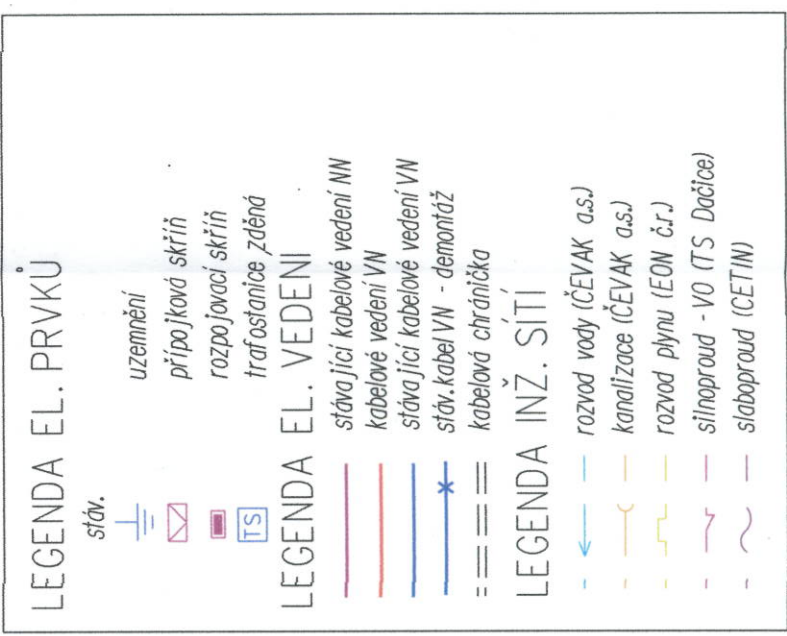 LEGENDA EL. PRVKŮ
stáv.
uzemnění
přípojková skříň
rozpojovací skříň
TS trafostanice zděná
LEGENDA EL. VEDENÍ
stávající kabelové vedení NN
kabelové vedení VN
stávající kabelové vedení VN
stáv.kabel VN - demontáž
kabelová chránička
LEGENDA INŽ. SÍTÍ
rozvod vody (ČEVAK a.s.)
kanalizace (ČEVAK a.s.)
rozvod plynu (EON č.r.)
silnoproud - VO (TS Dačice)
slaboproud (CETIN)